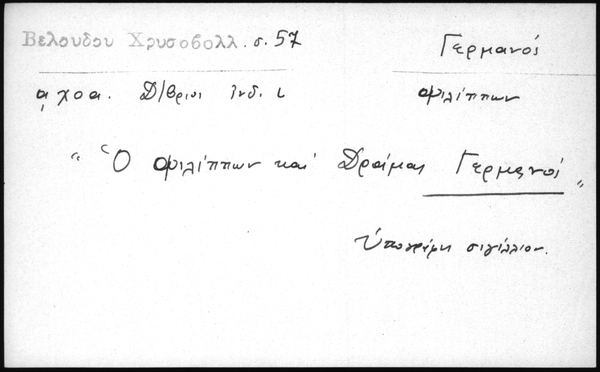 Βελουδου Χρυσοβολλ. σ. 57
Γερμανός
͵αχοα. Δ/βριος Ινδ. ι
Φιλίππων
“Ὁ Φιλίππων καὶ Δράμας Γερμανός„
Ὑπογράφει σιγίλλιον.